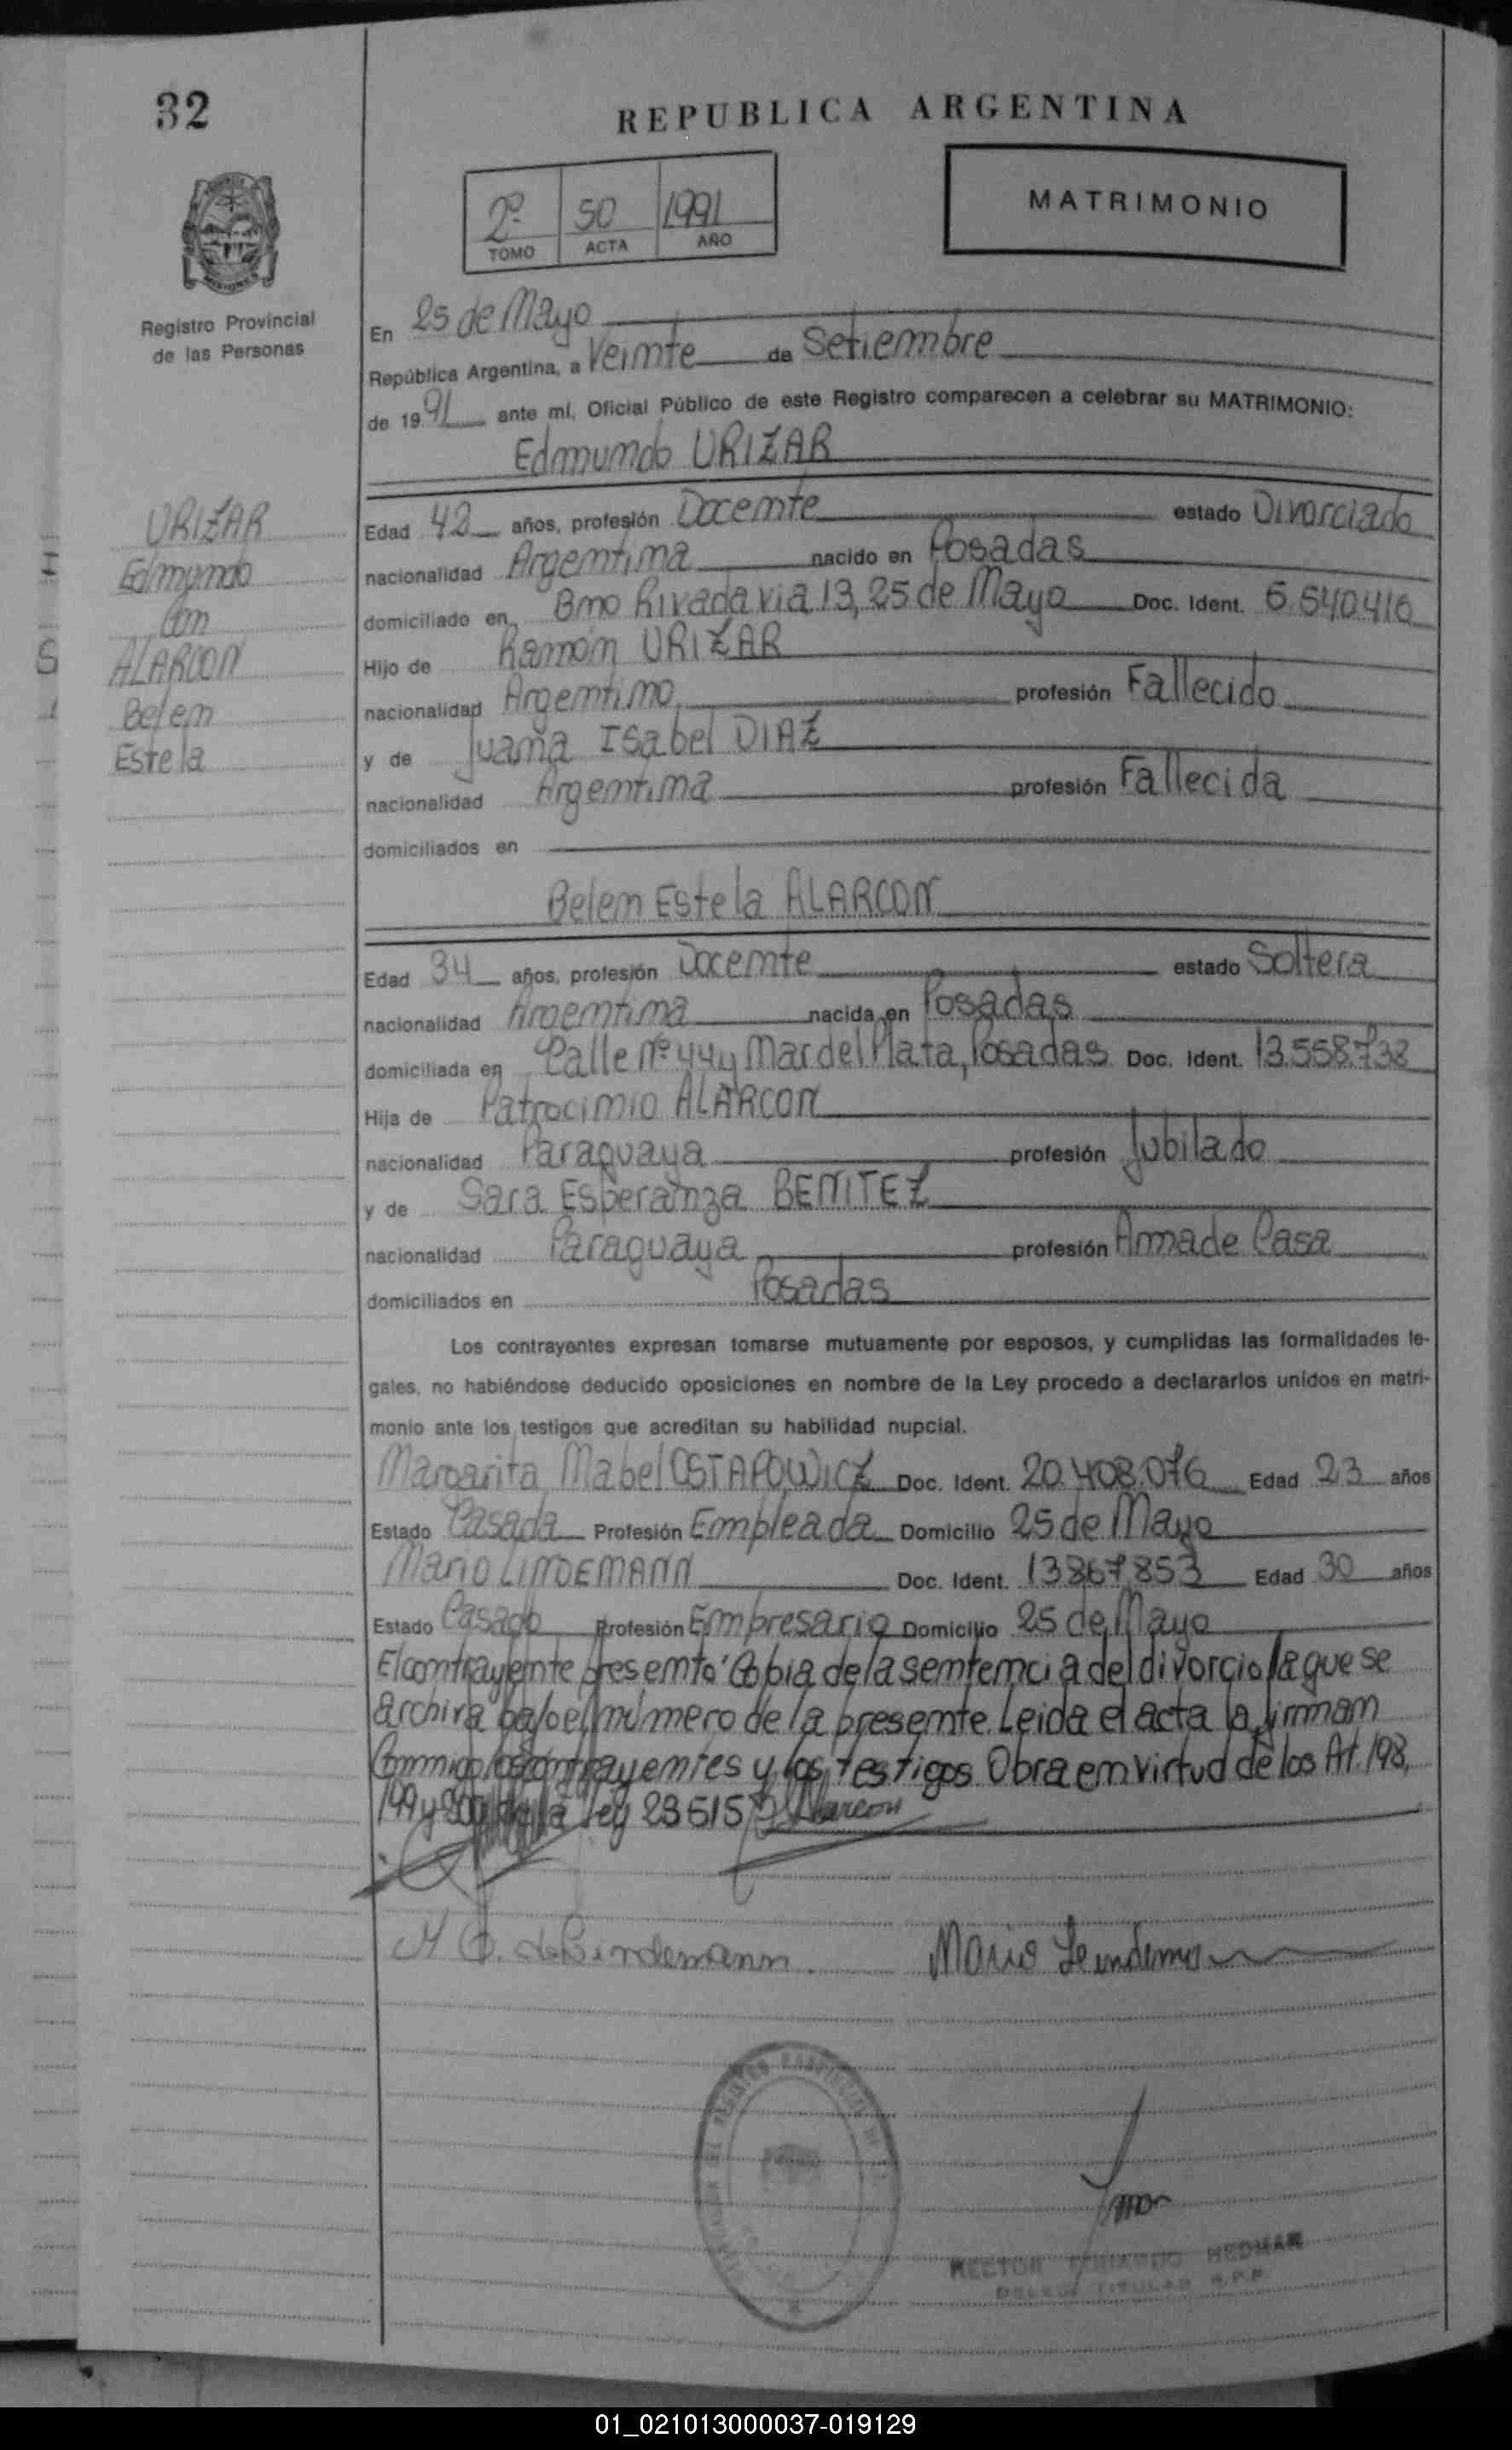 32
REPUBLICA ARGENTINA
2º 50 1991
TOMO ACTA AÑO
MATRIMONIO
Registro Provincial
de las Personas
En 25 de Mayo
República Argentina, a Veinte de Setiembre
de 1991 ante mí, Oficial Público de este Registro comparecen a celebrar su MATRIMONIO:
Edmundo URIZAR
URIZAR
Edmundo
Con
ALARCON
Belen
Estela
Edad 42 años, profesión Docente estado Divorciado
nacionalidad Argentina nacido en Posadas
domiciliado en Bno Rivadavia 13, 25 de Mayo Doc. Ident. 5.540.416
Hijo de Ramón URIZAR
nacionalidad Argentino profesión Fallecido
y de Juana Isabel DIAZ
nacionalidad Argentina profesión Fallecida
domiciliados en
Belen Estela ALARCON
Edad 34 años, profesión Docente estado Soltera
nacionalidad Argentina nacida en Posadas
domiciliada en Calle Nº 44 y Mar del Plata, Posadas Doc. Ident. 13.558.738
Hija de Patrocinio ALARCON
nacionalidad Paraguaya profesión Jubilado
y de Sara Esperanza BENITEZ
nacionalidad Paraguaya profesión Ama de Casa
domiciliados en Posadas
Los contrayentes expresan tomarse mutuamente por esposos, y cumplidas las formalidades le-
gales, no habiéndose deducido oposiciones en nombre de la Ley procedo a declararlos unidos en matri-
monio ante los testigos que acreditan su habilidad nupcial.
Margarita Mabel OSTAPOWICZ Doc. Ident. 20.408.076 Edad 23 años
Estado Casada Profesión Empleada Domicilio 25 de Mayo
Mario LINDEMANN Doc. Ident. 13867.853 Edad 30 años
Estado Casado Profesión Empresario Domicilio 25 de Mayo
El contrayente presentó Copia de la sentencia del divorcio la que se
archiva bajo el número de la presente. Leida el acta la firman
Conmigo los contrayentes y los testigos. Obra en virtud de los Art. 198,
199 y 200 de la Ley 23515 Alarcon
M. O. de Lindemann Mario Lindemann
HECTOR HEDMAN
TITULAR R.P.P.
01_021013000037-019129